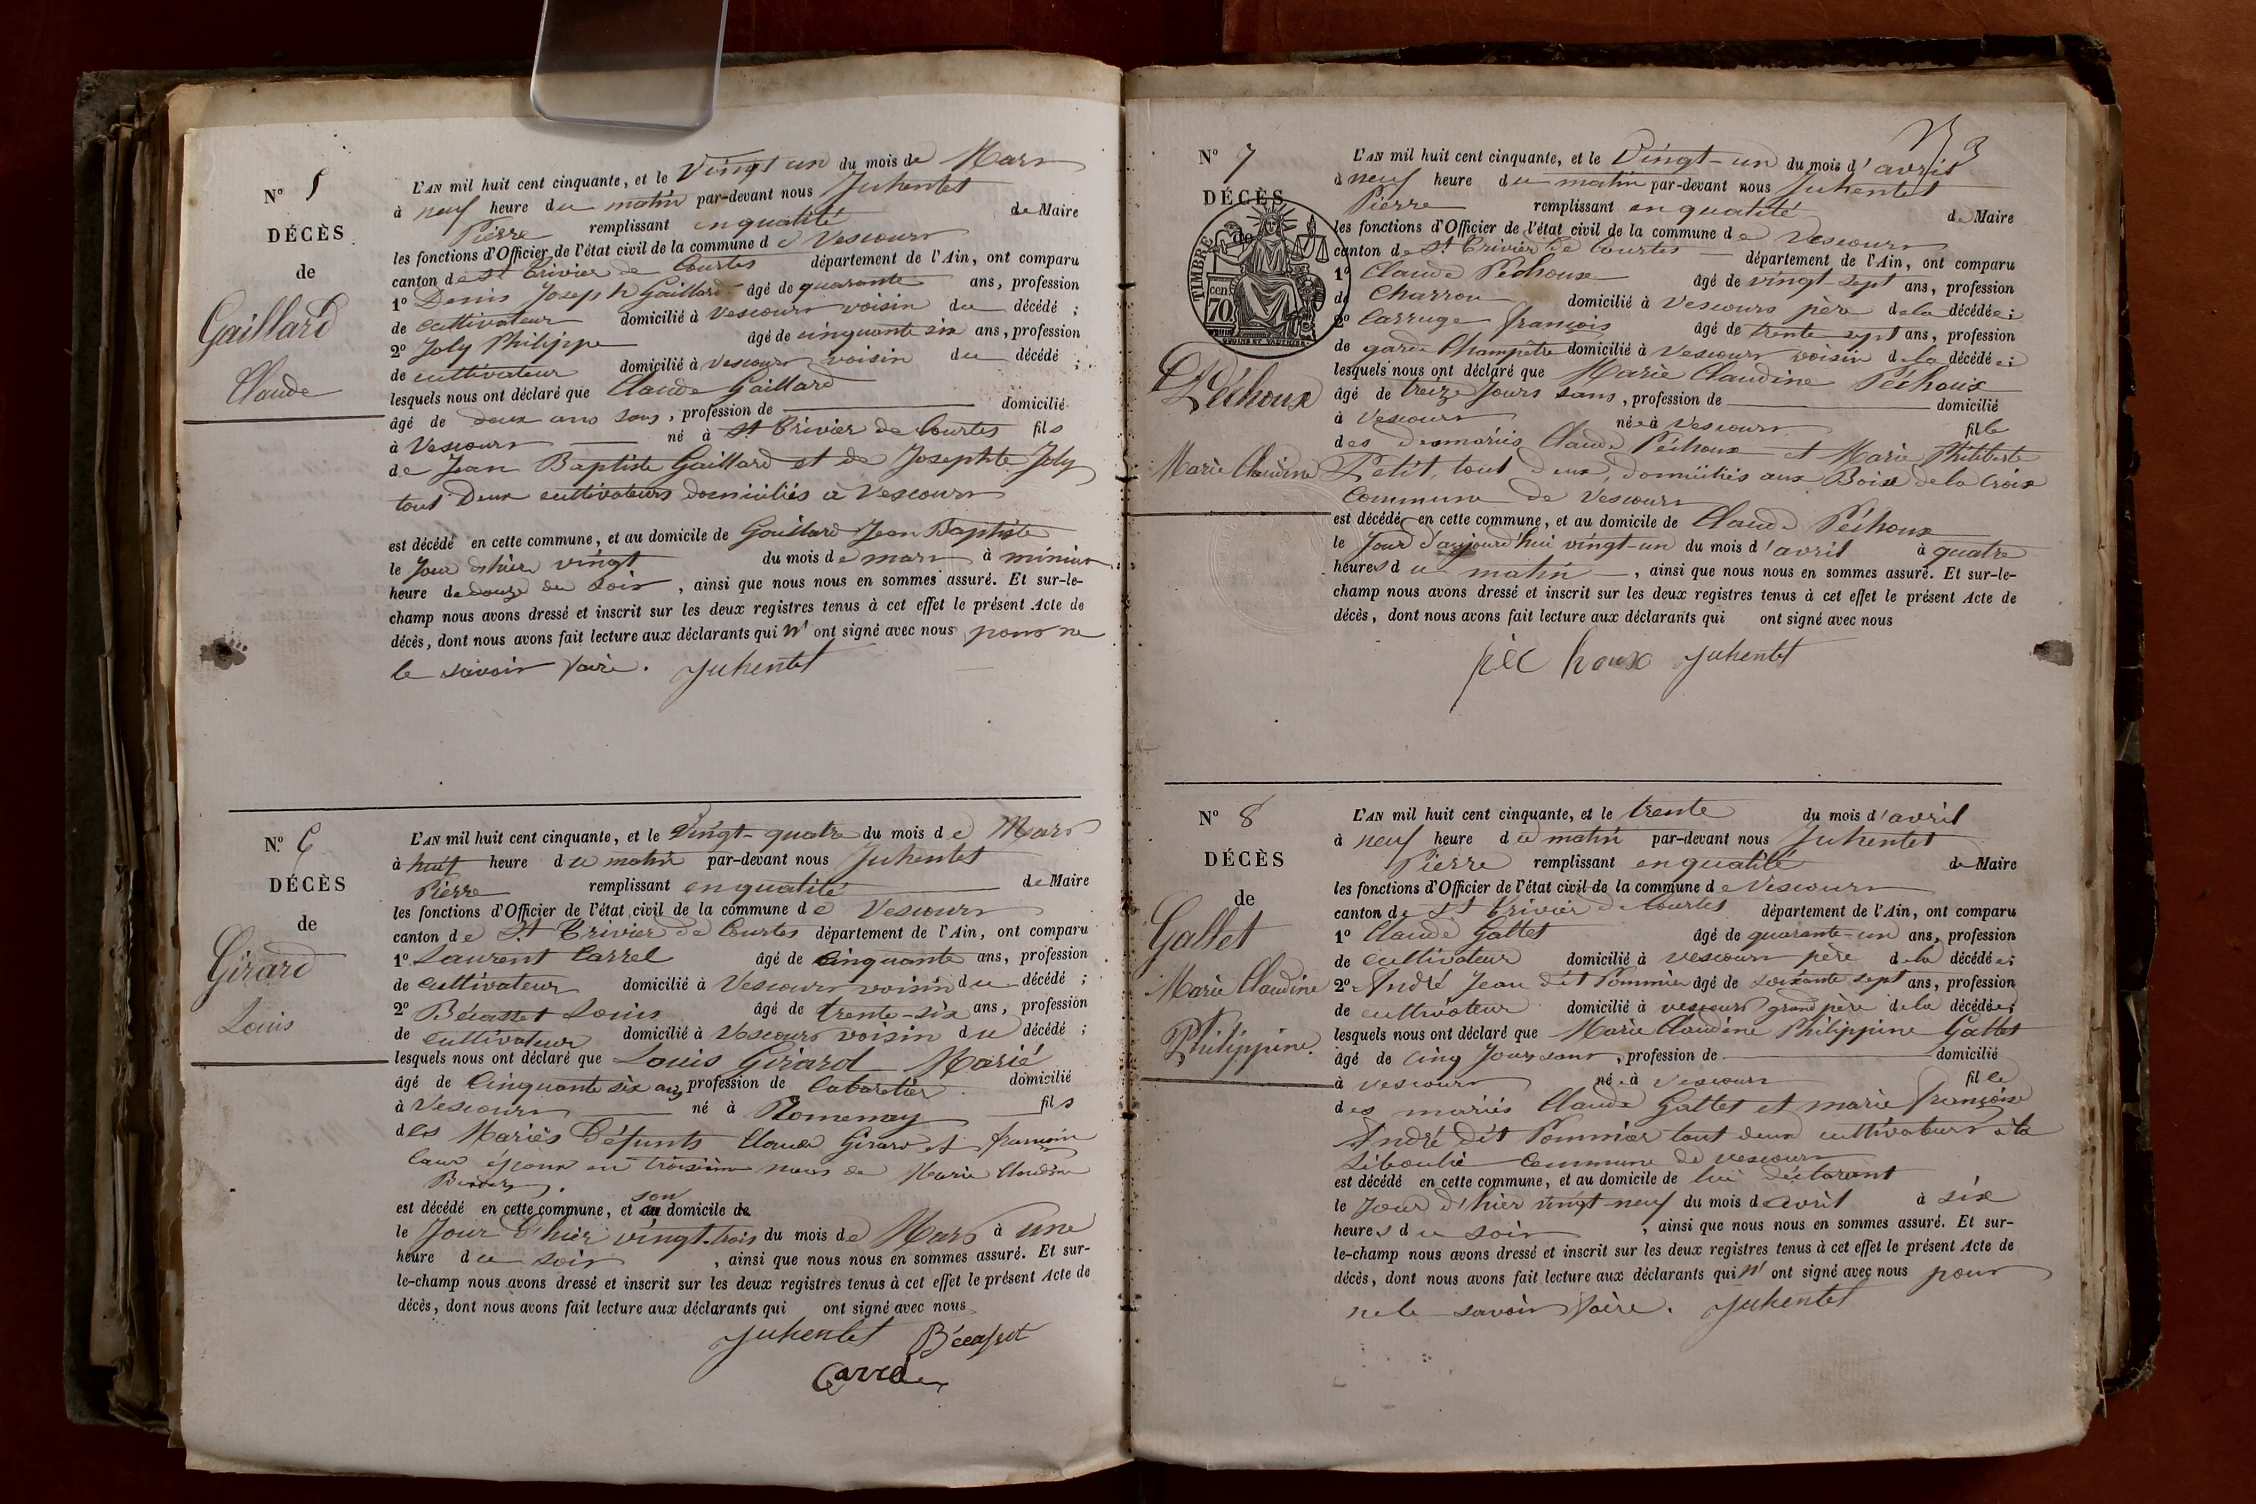 N° 5
DÉCÈS
de
Gaillard
Claude
L'AN mil huit cent cinquante, et le Vingt un du mois de Mars
à neuf heure du matin par-devant nous Juhentet
Pierre remplissant en qualité de Maire
les fonctions d'Officier de l'état civil de la commune de Vescours
canton de St Trivier de Courtes département de l'Ain, ont comparu
1° Denis Joseph Gaillard âgé de quarante ans, profession
de cultivateur domicilié à Vescours voisin du décédé ;
2° Joly Philippe âgé de cinquante six ans, profession
de cultivateur domicilié à Vescours voisin du décédé ;
lesquels nous ont déclaré que Claude Gaillard
âgé de deux ans sans, profession de domicilié
à Vescours né à St Trivier de Courtes fils
de Jean Baptiste Gaillard et de Josephte Joly
tout Deux cultivateurs domiciliés à Vescours
est décédé en cette commune, et au domicile de Gaillard Jean Baptiste
le Jour d'hier vingt du mois de mars à
heure de douze du soir, ainsi que nous nous en sommes assuré. Et sur-le-
champ nous avons dressé et inscrit sur les deux registres tenus à cet effet le présent Acte de
décès, dont nous avons fait lecture aux déclarants qui n' ont signé avec nous pour ne
le savoir faire. Juhentet
N° 6
DÉCÈS
de
Girard
Louis
L'AN mil huit cent cinquante, et le Vingt-quatre du mois de Mars
à huit heure du matin par-devant nous Juhentet
Pierre remplissant en qualité de Maire
les fonctions d'Officier de l'état civil de la commune de Vescours
canton de St Trivier de Courtes département de l'Ain, ont comparu
1° Laurent Carrel âgé de cinquante ans, profession
de cultivateur domicilié à Vescours voisin du décédé ;
2° Bécasset Louis âgé de trente-six ans, profession
de cultivateur domicilié à Vescours voisin du décédé ;
lesquels nous ont déclaré que Louis Girard Marié
âgé de Cinquante six ans profession de Cabaretier domicilié
à Vescours né à Romenay fils
des Mariés Défunts Claude Girard et
époux en troisième noces de Marie Claudine
est décédé en cette commune, et son domicile
le Jour d'hier vingt-trois du mois de Mars à une
heure du soir, ainsi que nous nous en sommes assuré. Et sur-
le-champ nous avons dressé et inscrit sur les deux registres tenus à cet effet le présent Acte de
décès, dont nous avons fait lecture aux déclarants qui ont signé avec nous
Juhentet Bécasset
Carrel
3
N° 7
DÉCÈS
de
TIMBRE
70 cent
Péchoux
Marie Claudine
L'AN mil huit cent cinquante, et le Vingt-un du mois d'avril
à neuf heure du matin par-devant nous Juhentet
Pierre remplissant en qualité de Maire
les fonctions d'Officier de l'état civil de la commune de Vescours
canton de St Trivier de Courtes département de l'Ain, ont comparu
1° Claude Péchoux âgé de vingt-sept ans, profession
de Charron domicilié à Vescours père de la décédée ;
2° Carruge françois âgé de trente sept ans, profession
de garde Champêtre domicilié à Vescours voisin de la décédée ;
lesquels nous ont déclaré que Marie Claudine Péchoux
âgé de treize Jours sans, profession de domicilié
à Vescours née à Vescours fille
des mariés Claude Péchoux et Marie Philiberte
Petit, tout deux domiciliés aux Bois de la Croix
Commune de Vescours
est décédé en cette commune, et au domicile de Claude Péchoux
le Jour d'aujourd'hui vingt-un du mois d'avril à quatre
heures du matin, ainsi que nous nous en sommes assuré. Et sur-le-
champ nous avons dressé et inscrit sur les deux registres tenus à cet effet le présent Acte de
décès, dont nous avons fait lecture aux déclarants qui ont signé avec nous
péchoux Juhentet
N° 8
DÉCÈS
de
Gallet
Marie Claudine
Philippine.
L'AN mil huit cent cinquante, et le trente du mois d'avril
à neuf heure du matin par-devant nous Juhentet
Pierre remplissant en qualité de Maire
les fonctions d'Officier de l'état civil de la commune de Vescours
canton de St Trivier de Courtes département de l'Ain, ont comparu
1° Claude Gallet âgé de quarante-un ans, profession
de cultivateur domicilié à Vescours père de la décédée ;
2° André Jean dit Pommier âgé de soixante sept ans, profession
de cultivateur domicilié à vescours grand père de la décédée ;
lesquels nous ont déclaré que Marie Claudine Philippine Gallet
âgé de Cinq Jours sans, profession de domicilié
à Vescours née à Vescours fille
des mariés Claude Gallet et marie françoise
André dit Pommier tout deux cultivateurs à la
commune de vescours
est décédé en cette commune, et au domicile de lui déclarant
le Jour d'hier vingt-neuf du mois d'avril à six
heures du soir, ainsi que nous nous en sommes assuré. Et sur-
le-champ nous avons dressé et inscrit sur les deux registres tenus à cet effet le présent Acte de
décès, dont nous avons fait lecture aux déclarants qui n' ont signé avec nous pour
ne le savoir faire. Juhentet